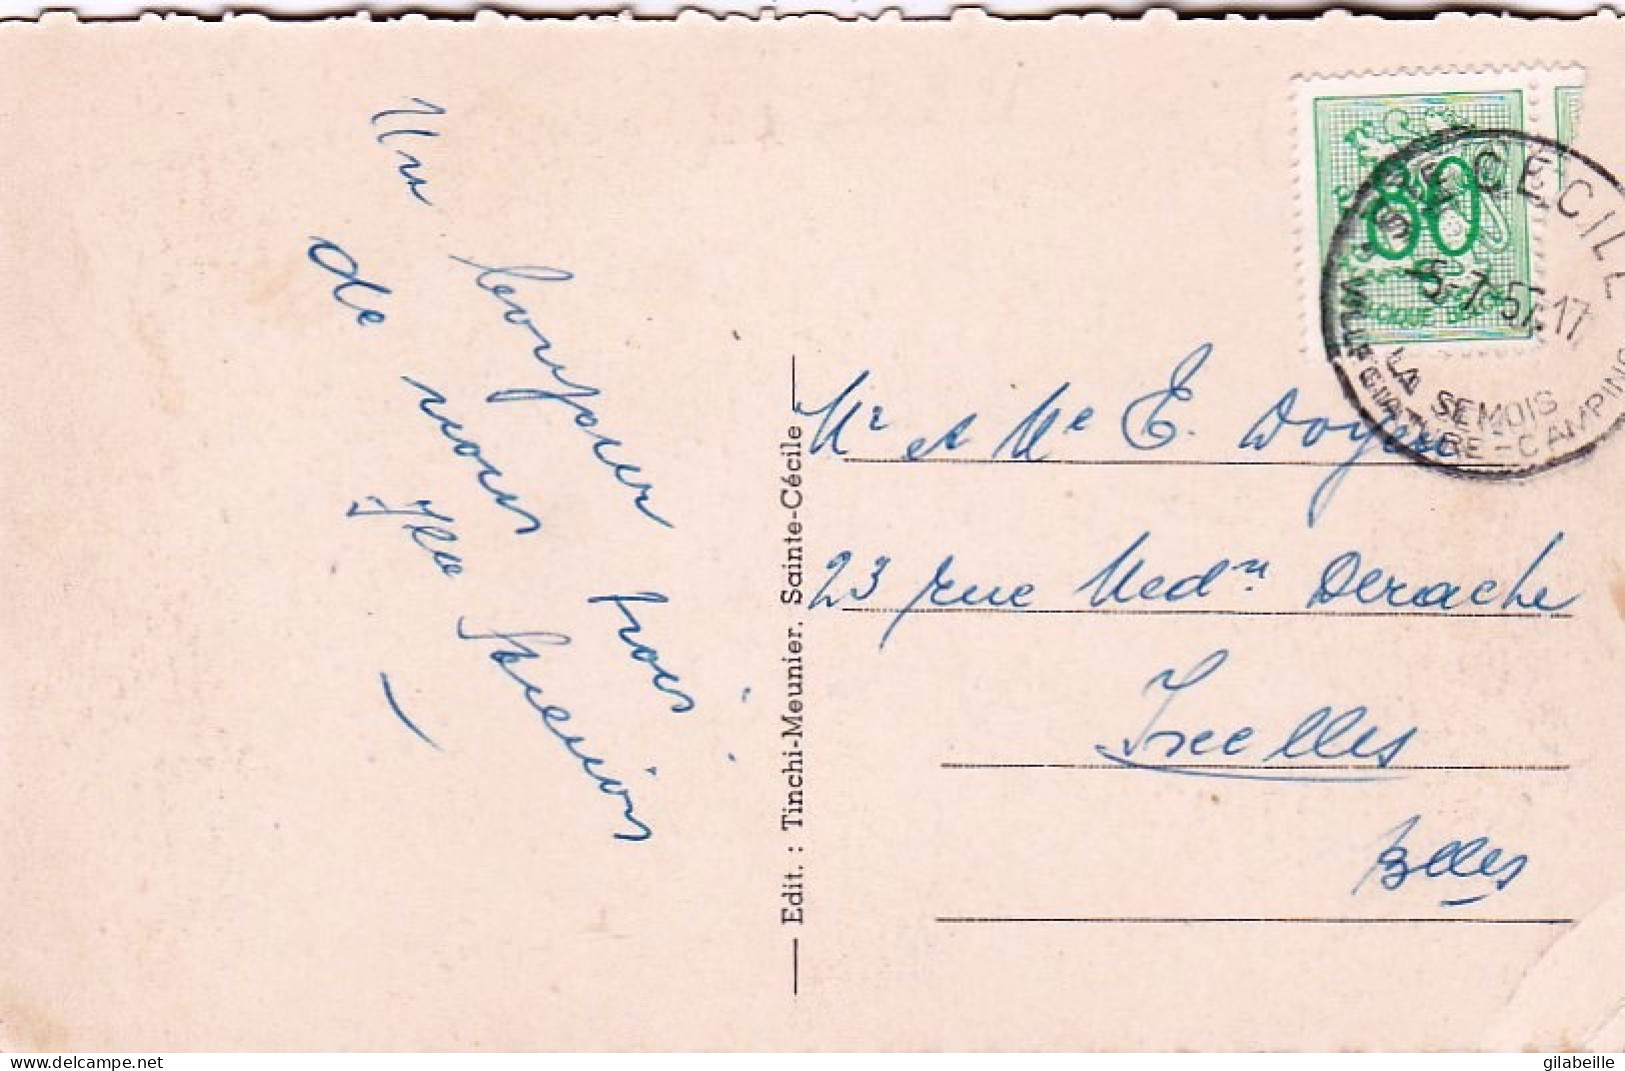 Un bonjour
de nous trois
Edit. : Tinchi-Meunier. Sainte-Cécile
80
BELGIQUE BELGIE
STE CECILE
5-7-57 17
LA SEMOIS
VILLEGIATURE-CAMPING
Mr et Me E. Doyen
23 rue Medn Derache
Ixelles
Blles
delcampe.net
gilabeille